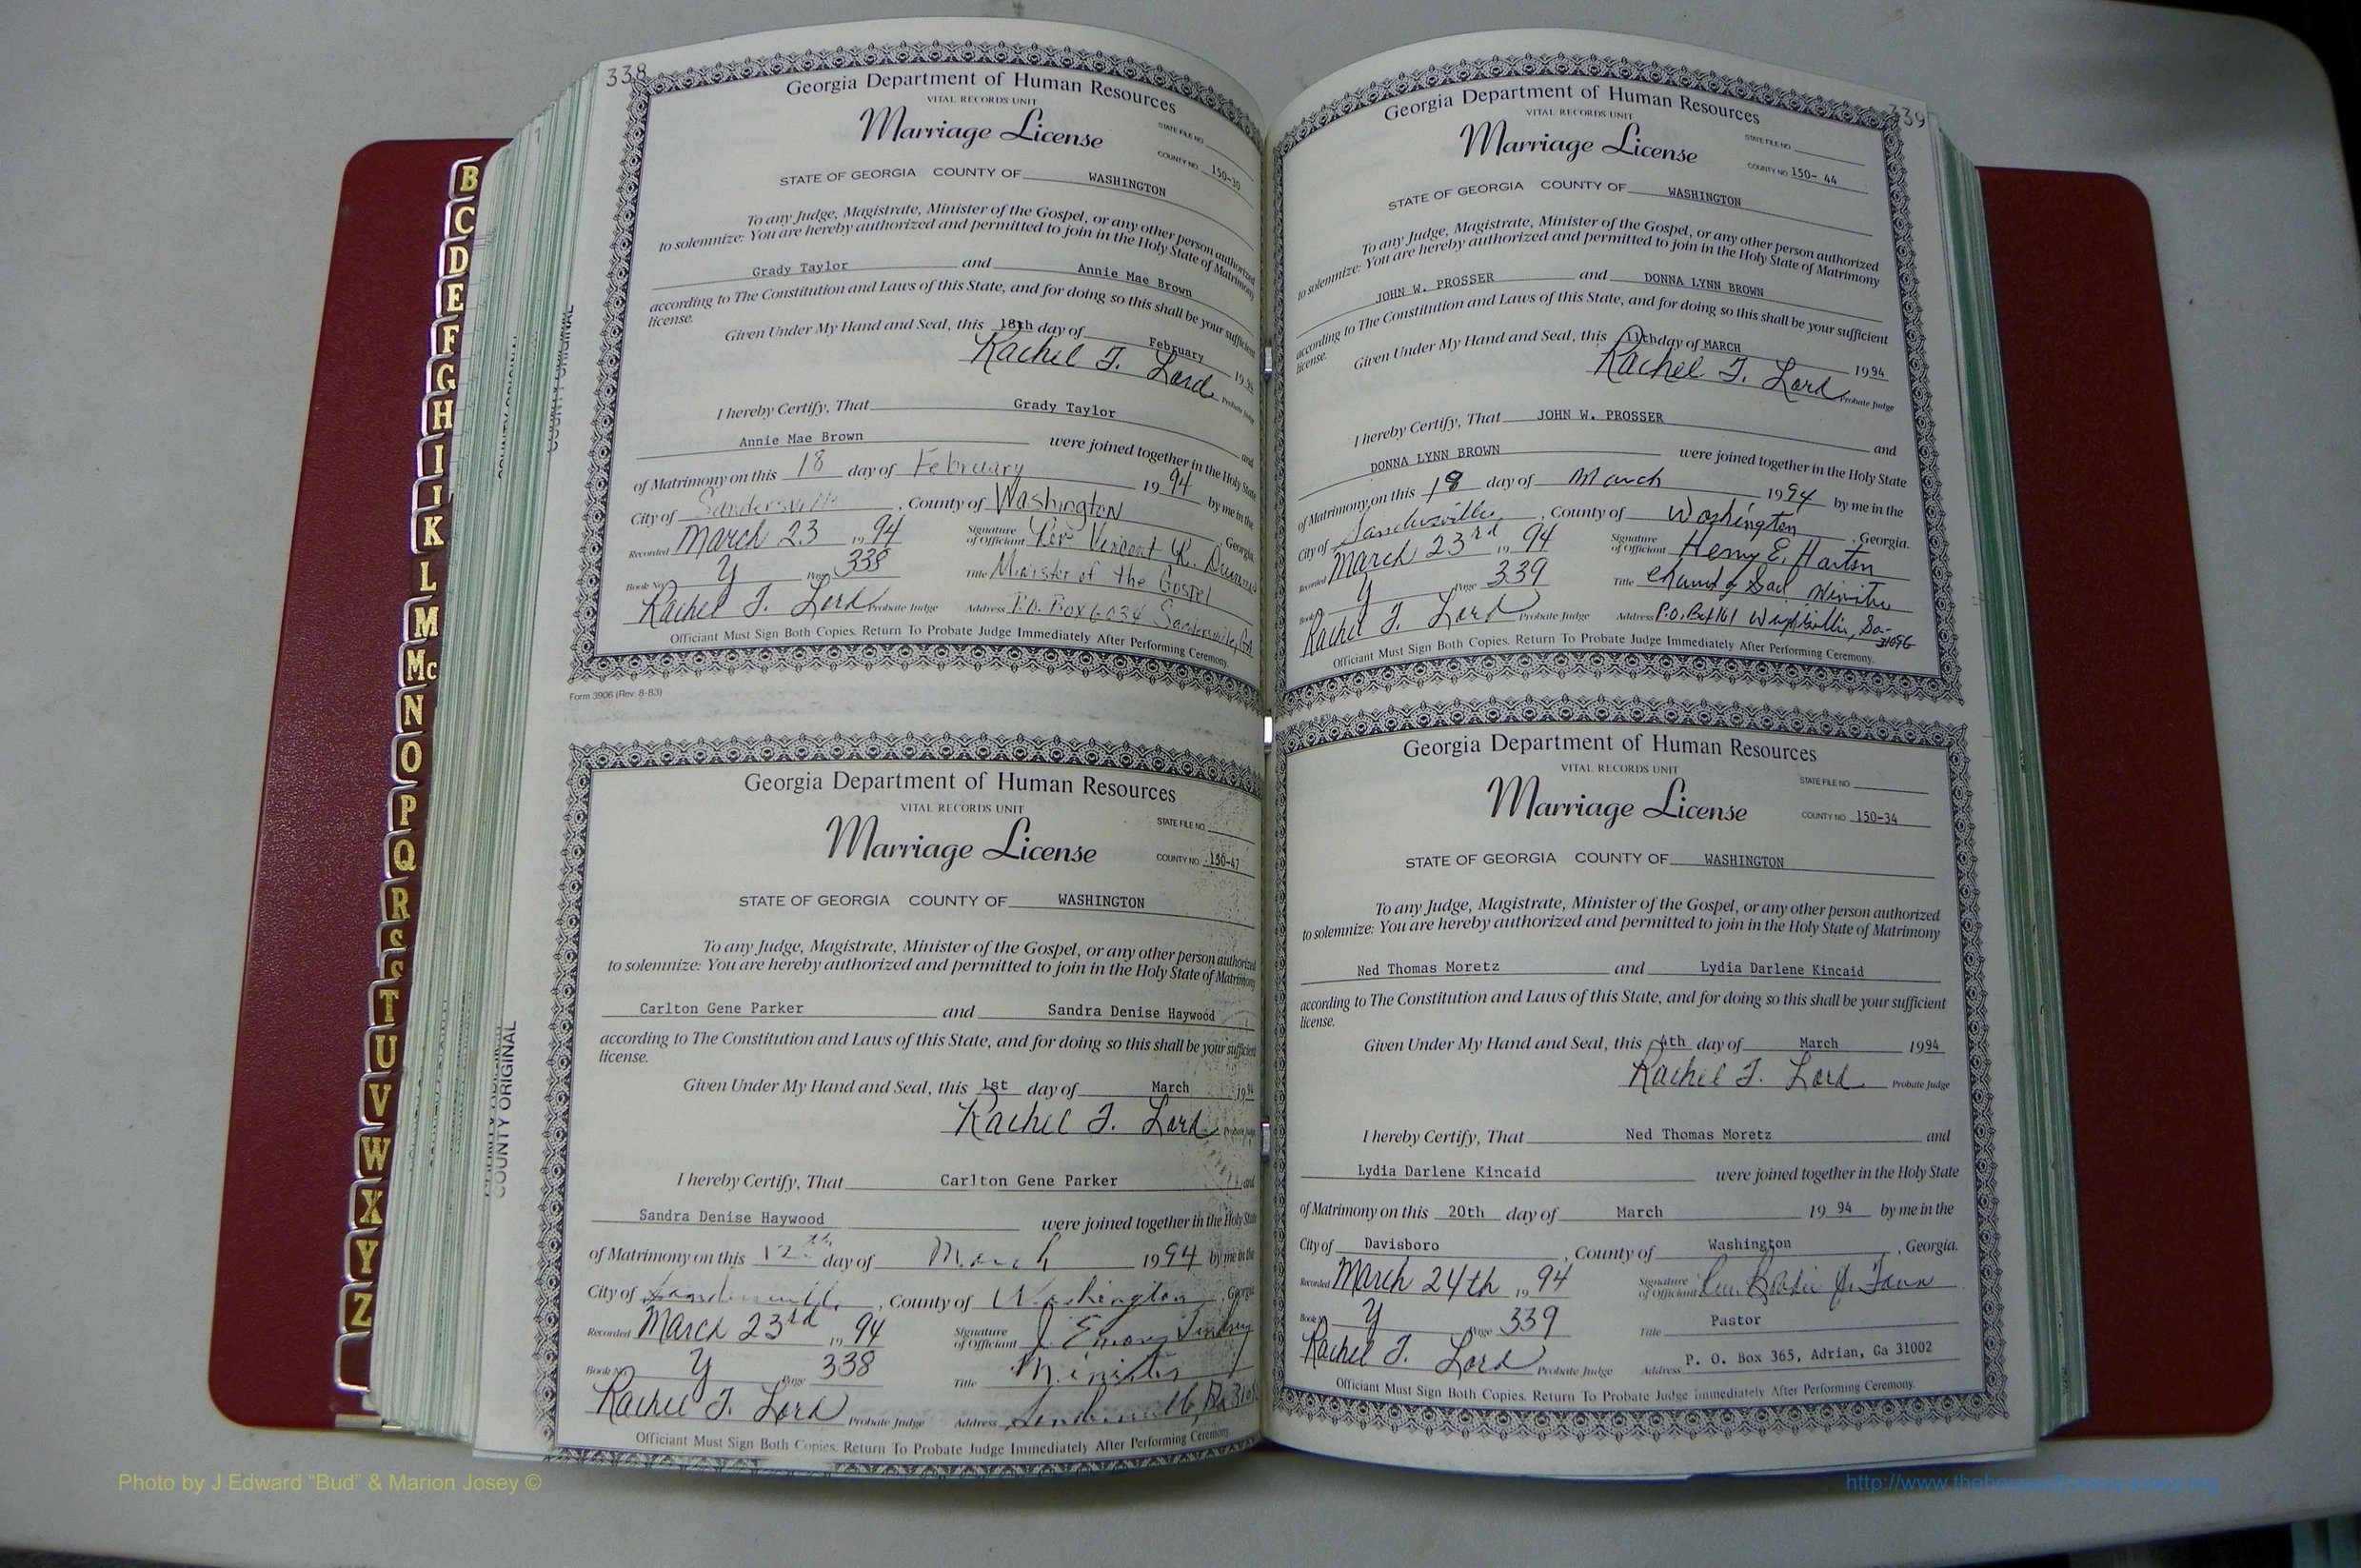 B
C
D
E
F
G
H
I
J
K
L
M
Mc
N
O
P
Q
R
S
S
T
U
V
W
X
Y
Z
COUNTY ORIGINAL
COUNTY ORIGINAL
338
Georgia Department of Human Resources
VITAL RECORDS UNIT
Marriage License
STATE FILE NO.
COUNTY NO. 150-30
STATE OF GEORGIA COUNTY OF WASHINGTON
To any Judge, Magistrate, Minister of the Gospel, or any other person authorized
to solemnize: You are hereby authorized and permitted to join in the Holy State of Matrimony
Grady Taylor and Annie Mae Brown
according to The Constitution and Laws of this State, and for doing so this shall be your sufficient
license.
Given Under My Hand and Seal, this 18th day of February 1994
Rachel T. Lord Probate Judge
I hereby Certify, That Grady Taylor and
Annie Mae Brown were joined together in the Holy State
of Matrimony on this 18 day of February 1994 by me in the
City of Sandersville, County of Washington, Georgia.
Recorded March 23 1994 Signature of Officiant Rev. Vincent R.
Book No. Y Page 338 Title Minister of the Gospel
Rachel T. Lord Probate Judge Address P.O. Box 6034 Sandersville, GA
Officiant Must Sign Both Copies. Return To Probate Judge Immediately After Performing Ceremony.
Form 3906 (Rev. 8-83)
Georgia Department of Human Resources
VITAL RECORDS UNIT
Marriage License
STATE FILE NO.
COUNTY NO. 150-47
STATE OF GEORGIA COUNTY OF WASHINGTON
To any Judge, Magistrate, Minister of the Gospel, or any other person authorized
to solemnize: You are hereby authorized and permitted to join in the Holy State of Matrimony
Carlton Gene Parker and Sandra Denise Haywood
according to The Constitution and Laws of this State, and for doing so this shall be your sufficient
license.
Given Under My Hand and Seal, this 1st day of March 1994
Rachel T. Lord Probate Judge
I hereby Certify, That Carlton Gene Parker and
Sandra Denise Haywood were joined together in the Holy State
of Matrimony on this 12th day of March 1994 by me in the
City of Sandersville, County of Washington, Georgia
Recorded March 23rd 1994 Signature of Officiant J. Emory
Book No. Y Page 338 Title Minister
Rachel T. Lord Probate Judge Address Sandersville, Ga
Officiant Must Sign Both Copies. Return To Probate Judge Immediately After Performing Ceremony.
339
Georgia Department of Human Resources
VITAL RECORDS UNIT
Marriage License
STATE FILE NO.
COUNTY NO. 150- 44
STATE OF GEORGIA COUNTY OF WASHINGTON
To any Judge, Magistrate, Minister of the Gospel, or any other person authorized
to solemnize: You are hereby authorized and permitted to join in the Holy State of Matrimony
JOHN W. PROSSER and DONNA LYNN BROWN
according to The Constitution and Laws of this State, and for doing so this shall be your sufficient
license.
Given Under My Hand and Seal, this 11th day of MARCH 1994
Rachel T. Lord Probate Judge
I hereby Certify, That JOHN W. PROSSER and
DONNA LYNN BROWN were joined together in the Holy State
of Matrimony on this 18 day of March 1994 by me in the
City of Sandersville, County of Washington, Georgia.
Recorded March 23rd 1994 Signature of Officiant Henry E.
Book Y Page 339 Title Church of God Minister
Rachel T. Lord Probate Judge Address P.O. Box 161 Wrightsville, Ga- 31096
Officiant Must Sign Both Copies. Return To Probate Judge Immediately After Performing Ceremony.
Georgia Department of Human Resources
VITAL RECORDS UNIT
Marriage License
STATE FILE NO.
COUNTY NO. 150-34
STATE OF GEORGIA COUNTY OF WASHINGTON
To any Judge, Magistrate, Minister of the Gospel, or any other person authorized
to solemnize: You are hereby authorized and permitted to join in the Holy State of Matrimony
Ned Thomas Moretz and Lydia Darlene Kincaid
according to The Constitution and Laws of this State, and for doing so this shall be your sufficient
license.
Given Under My Hand and Seal, this 4th day of March 1994
Rachel T. Lord Probate Judge
I hereby Certify, That Ned Thomas Moretz and
Lydia Darlene Kincaid were joined together in the Holy State
of Matrimony on this 20th day of March 1994 by me in the
City of Davisboro, County of Washington, Georgia.
Recorded March 24th 1994 Signature of Officiant
Book No. Y Page 339 Title Pastor
Rachel T. Lord Probate Judge Address P. O. Box 365, Adrian, Ga 31002
Officiant Must Sign Both Copies. Return To Probate Judge Immediately After Performing Ceremony.
Photo by J Edward “Bud” & Marion Josey ©